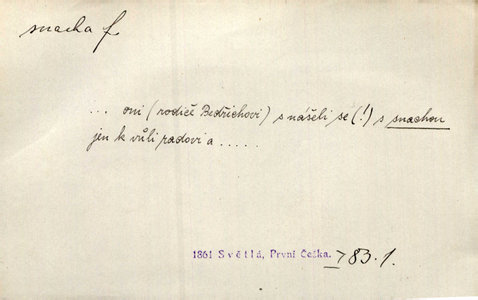 snacha f.
... oni (rodiče Bedřichovi) snášeli se (!) s snachou
jen k vůli radovi a .....
1861 Světlá, První Češka. > 83.1.